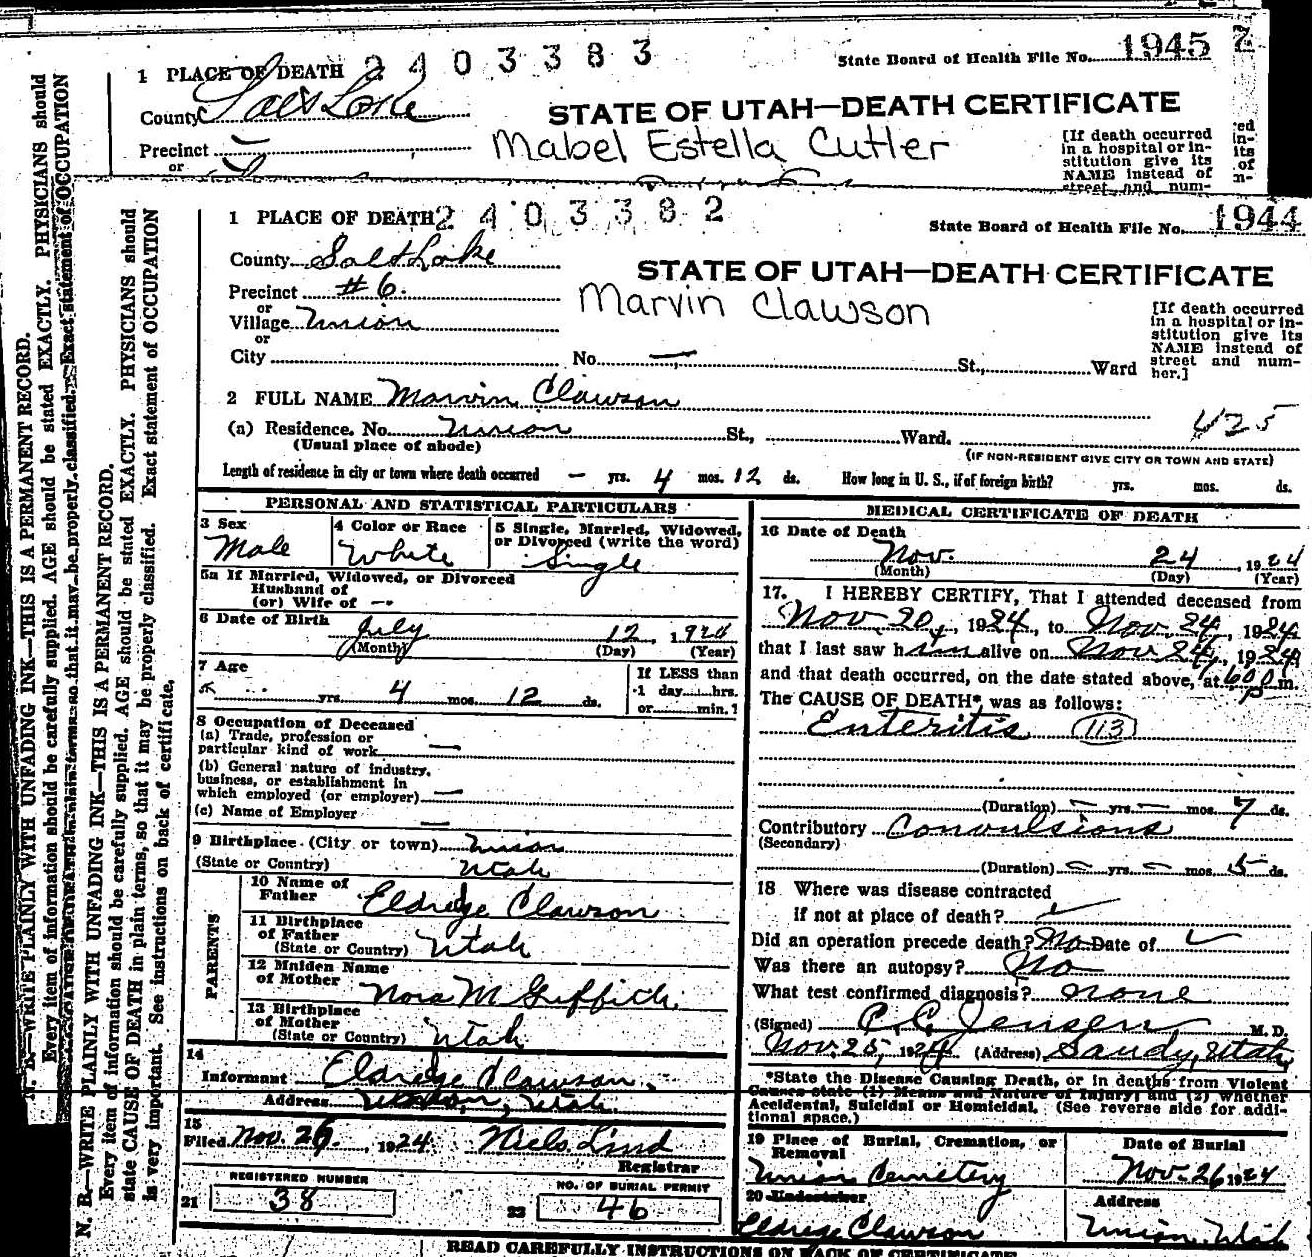 1 PLACE OF DEATH 2403383
State Board of Health File No. 1945
County Salt Lake
STATE OF UTAH—DEATH CERTIFICATE
Precinct —
Mabel Estella Cutler
or
[If death occurred
in a hospital or in-
stitution give its
NAME instead of
street and num-
1 PLACE OF DEATH 2403382
State Board of Health File No. 1944
County Salt Lake
STATE OF UTAH—DEATH CERTIFICATE
Precinct #6.
Marvin Clawson
or
Village Union
or
City No. — St., Ward
[If death occurred
in a hospital or in-
stitution give its
NAME instead of
street and num-
her.]
2 FULL NAME Marvin Clawson
(a) Residence. No. Union St., Ward.
(Usual place of abode)
(IF NON-RESIDENT GIVE CITY OR TOWN AND STATE)
Length of residence in city or town where death occurred — yrs. 4 mos. 12 ds. How long in U. S., if of foreign birth? yrs. mos. ds.
PERSONAL AND STATISTICAL PARTICULARS
3 Sex
Male
4 Color or Race
White
5 Single, Married, Widowed,
or Divorced (write the word)
Single
5a If Married, Widowed, or Divorced
Husband of
(or) Wife of —
6 Date of Birth
July 12, 1924
(Month) (Day) (Year)
7 Age
yrs. 4 mos. 12 ds.
If LESS than
1 day....hrs.
or....min.?
8 Occupation of Deceased
(a) Trade, profession or
particular kind of work —
(b) General nature of industry,
business, or establishment in
which employed (or employer) —
(c) Name of Employer —
9 Birthplace (City or town) Union
(State or Country) Utah
PARENTS
10 Name of
Father Eldrege Clawson
11 Birthplace
of Father
(State or Country) Utah
12 Maiden Name
of Mother Nora M Griffith
13 Birthplace
of Mother
(State or Country) Utah
14
Informant Eldrege Clawson
Address Union, Utah
15
Filed Nov. 26, 1924 Niels Lind
Registrar
REGISTERED NUMBER
21 38
NO. OF BURIAL PERMIT
22 46
MEDICAL CERTIFICATE OF DEATH
16 Date of Death
Nov. 24, 1924
(Month) (Day) (Year)
17. I HEREBY CERTIFY, That I attended deceased from
Nov. 20, 1924, to Nov. 24, 1924
that I last saw him alive on Nov 24, 1924
and that death occurred, on the date stated above, at 6 00 p m.
The CAUSE OF DEATH* was as follows:
Enteritis (113)
(Duration) — yrs. — mos. 7 ds.
Contributory Convulsions
(Secondary)
(Duration) — yrs. — mos. 5 ds.
18 Where was disease contracted
if not at place of death?
Did an operation precede death? No Date of
Was there an autopsy? No
What test confirmed diagnosis? none
(Signed) C. C. Jensen M. D.
Nov. 25, 1924 (Address) Sandy, Utah
*State the Disease Causing Death, or in deaths from Violent
Causes state (1) Means and Nature of Injury; and (2) whether
Accidental, Suicidal or Homicidal. (See reverse side for addi-
tional space.)
19 Place of Burial, Cremation, or
Removal
Union Cemetery
Date of Burial
Nov. 26 1924
20 Undertaker
Eldrege Clawson
Address
Union, Utah
READ CAREFULLY INSTRUCTIONS ON BACK OF CERTIFICATE
N. B.—WRITE PLAINLY WITH UNFADING INK—THIS IS A PERMANENT RECORD.
Every item of information should be carefully supplied. AGE should be stated EXACTLY. PHYSICIANS should
state CAUSE OF DEATH in plain terms, so that it may be properly classified. Exact statement of OCCUPATION
is very important. See instructions on back of certificate.
N. B.—WRITE PLAINLY WITH UNFADING INK—THIS IS A PERMANENT RECORD.
Every item of information should be carefully supplied. AGE should be stated EXACTLY. PHYSICIANS should
so that it may be properly classified. Exact statement of OCCUPATION